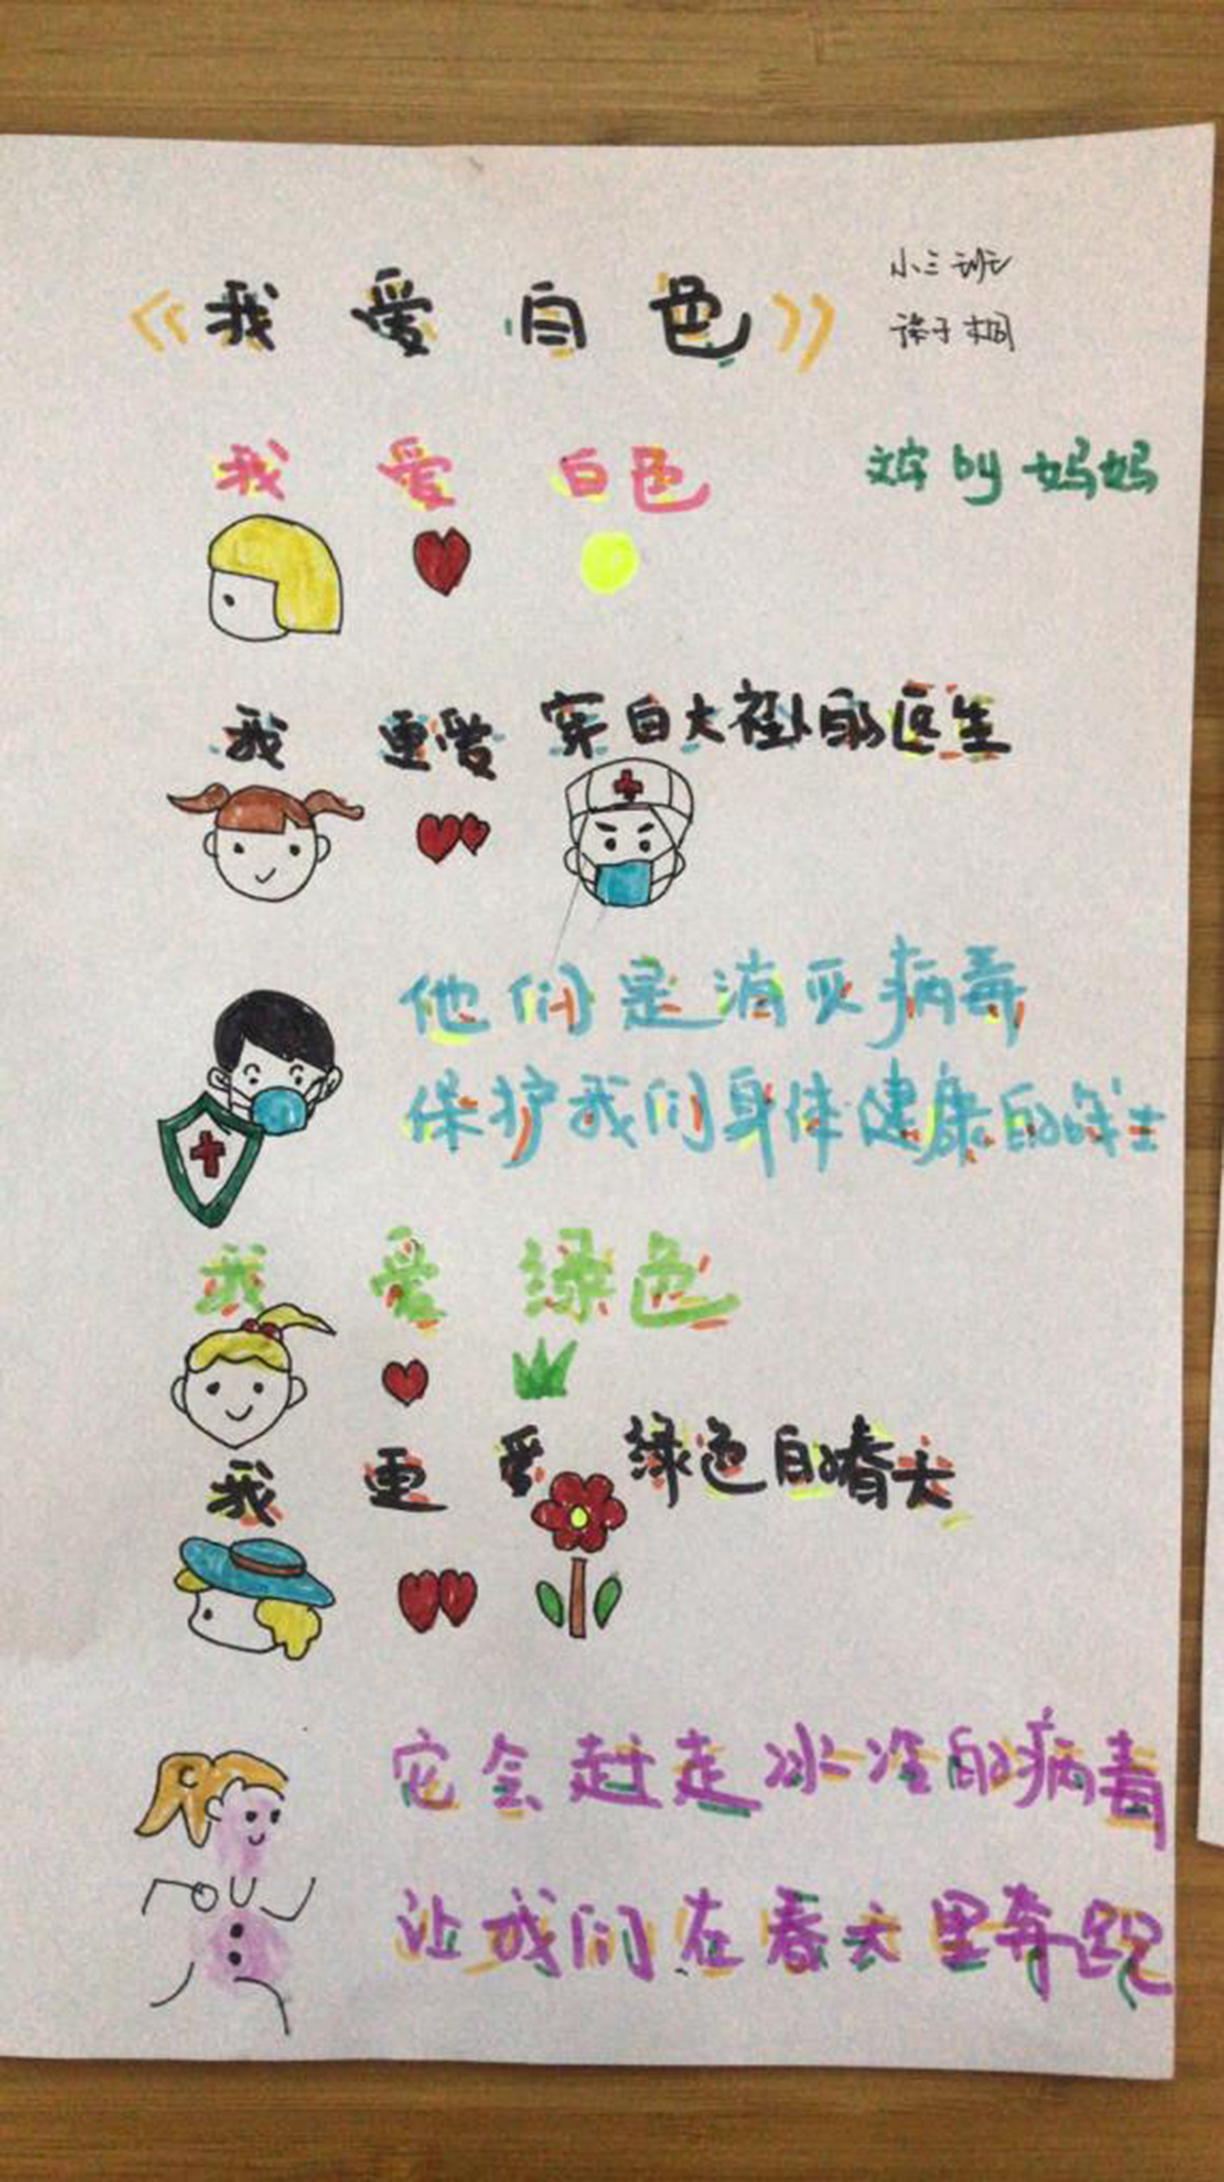 《我爱白色》
小三班
徐子桐
文字 by 妈妈
我 爱 白色
我 更爱 穿白大褂的医生
他们是消灭病毒
保护我们身体健康的战士
我 爱 绿色
我 更 爱 绿色的春天
它会赶走冰冷的病毒
让我们在春天里奔跑